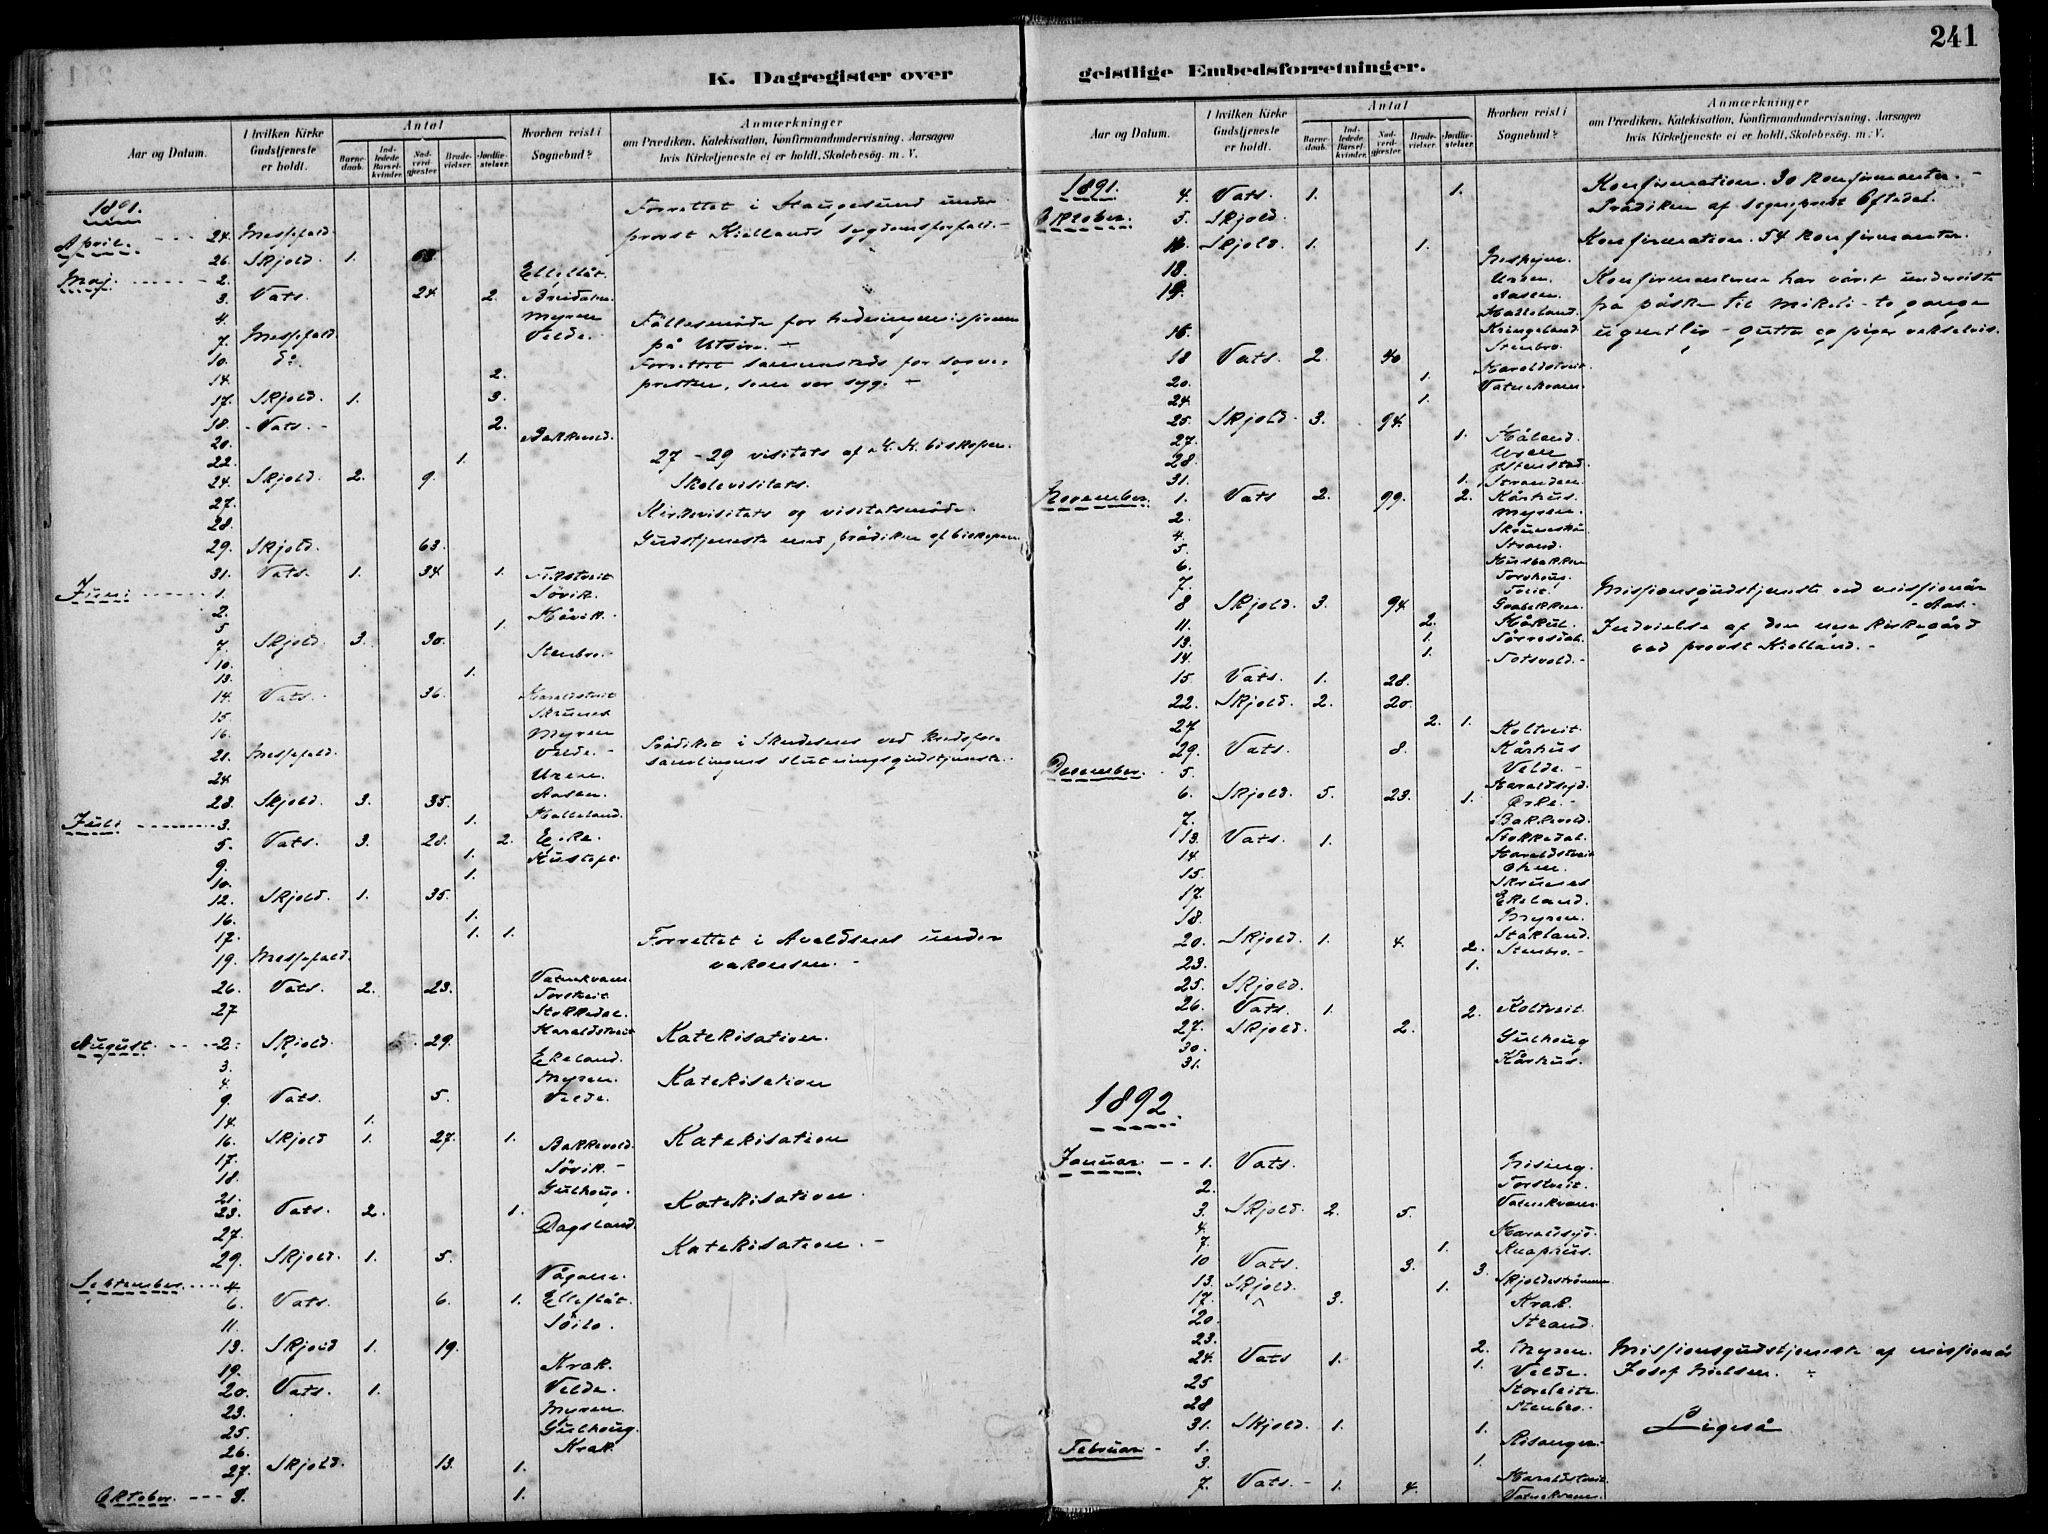 241
K. Dagregister over
Aar og Datum.
I hvilken Kirke Gudstjeneste er holdt.
Antal
Barnedaab.
Indledede Barselkvinder.
Nadverdgjæster
Brudevielser.
Jordfæstelser.
Hvorhen reist i Sognebud?
Anmærkninger
om Prædiken, Katekisation, Konfirmandundervisning, Aarsagen
hvis Kirketjeneste ei er holdt, Skolebesøg. m. V.
1891.
Forrettet i Haugesund under
April. 24. Messefald. provst Kiellands sygdomsforfald. -
26. Skjold. 1. 63.
Maj. 2. Elleflåt.
3. Vats. 24. 2. Breidalen.
4. Myren
7. Messefald. Velde. Fællesmøde for hedningemissionen
på Utsire. -
10. do Forrettet sammesteds for sogne-
14. 2. presten, som var syg. -
17. Skjold. 1. 3.
18. Vats. 2.
20. Bakkevold.
22. 1. 27 - 29 visitats af H. H. biskopen.
24. Skjold. 2. 9. Skolevisitats.
27.
28. Kirkevisitats og visitatsmøde.
29. Skjold. 63. Gudstjeneste med prædiken af biskopen.
31. Vats. 1. 34. 1.
Juni 1. Søvik.
2. Håvik.
5 1.
7. Skjold 3. 30.
10. Stenbro.
13. 1.
14. Vats. 36. Haraldstveit
15. Skrunes
16. Myren
21. Messefald. Velde. Prædiket i Skudesnes ved kredsfor-
samlingens slutningsgudstjeneste.
24. Uren.
28. Skjold. 3. 35. Aasen.
Juli 3. 1. Halleland.
5. Vats. 3. 28. 2. Eike.
9. 1.
10. 1.
12. Skjold. 1. 35.
16. 1.
17. 1. 1. Forrettet i Avaldsnes under
19. Messefald. vakansen. -
26. Vats. 2. 23. Vatnekvam.
Torstveit
27 Stokkedal.
August. 2. Skjold. 29. Haraldstveit Katekisation.
3. Ekeland.
4. Myren. Katekisation
9. Vats. 5. Velde.
14. 1.
16. Skjold 1. 27. 1. Bakkevold. Katekisation
17. Søvik. -
18. Gulhoug.
21. Katekisation.
23. Vats. 2. 1.
27. Dagsland.
29. Skjold. 1. 5. Katekisation. -
September. 4. Vågane.
6. Vats. 6. 1. Elleflåt.
11. Søilo.
13. Skjold 1. 19.
19. Krak.
20. Vats. 1. Velde.
23. Myren.
25. Gulhoug.
26. Krak.
27. Skjold. 13. 1.
Oktober. 3. 1.
geistlige Embedsforretninger.
Aar og Datum.
I hvilken Kirke Gudstjeneste er holdt.
Antal
Barnedaab.
Indledede Barselkvinder.
Nadverdgjæster
Brudevielser.
Jordfæstelser.
Hvorhen reist i Sognebud?
Anmærkninger
om Prædiken, Katekisation, Konfirmandundervisning, Aarsagen
hvis Kirketjeneste ei er holdt, Skolebesøg. m. V.
1891. 4. Vats. 1. 1. Konfirmation. 30 konfirmanter. -
Oktober. 5. Skjold. Prædiken af sogneprest Oftedal.
Skjold. 1. 1. Konfirmation. 54 konfirmanter.
18. Uren. Konfirmanterne har været underviste
19. Aasen. fra påske til mikeli - to gange
Halleland. ugentlig - gutter og piger vekselvis.
16. Kringeland
Stenbro.
18 Vats. 2. 40. Haraldstveit.
20. 1. Vatnekvam.
24. 1.
25. Skjold. 3. 94.
27. 1. Håland.
28. Uren
31. 1. Stranden.
November. 1. Vats 2. 99. 2. Kårhus.
2. Myren.
4.
5. Strand.
6. Husbakken
7. Torshoug. Missionsgudstjeneste ved missionær
8 Skjold. 3. 94. Aas. -
11. 2. Indvielse af den nye kirkegård
13. 1. ved provst Kielland. -
14. 1. Totsvold. -
15. Vats. 1. 28.
22. Skjold. 2. 20.
27 2. 1. Koltveit.
29. Vats. 8. Kårhus
December. 5. Velde. -
6. Skjold. 5. 23. 1. Haraldseid.
7. Bakkevold.
13. Vats. 1. Stokkedal.
14. Haraldstveit
15.
17. Skrunes
18. Ekeland.
Myren.
20. Skjold. 1. 4. 2. Stakland.
Stenbro. -
23. 1.
25. Skjold.
26. Vats. 1. 2. Koltveit.
27. Skjold. 2.
30. Gulhoug
31. Kårhus.
1892.
Januar 1. Vats.
2. Torstveit.
3. Skjold. 2. 5. Vatnekvam.
4. Haraldseid.
7. 1. Knaphus.
10 Vats. 3. 3.
13. 1. Skjoldestrømmen.
17. Skjold. 3. Krak.
20. Strand.
23.
24. Vats 1. 2. Myren. Missionsgudstjeneste af missionær
25 1. Velde. Josef Nielsen. -
28 Storeleite.
Stenbro.
31. Skjold. 1. 1. Ligeså
Februar. 1. Risanger.
3. 1.
7. Vats. - 1. 4. Haraldstveit.
Vatnekvam.